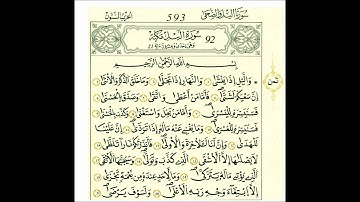 الحزب الستون
593
سُورَةُ الليل مَكِّيَّة 92
بِسْمِ اللَّهِ الرَّحْمَٰنِ الرَّحِيمِ
ثمن
وَالَّيْلِ إِذَا يَغْشَىٰ وَالنَّهَارِ إِذَا تَجَلَّىٰ وَمَا خَلَقَ الذَّكَرَ وَالْأُنثَىٰ
إِنَّ سَعْيَكُمْ لَشَتَّىٰ فَأَمَّا مَنْ أَعْطَىٰ وَاتَّقَىٰ وَصَدَّقَ بِالْحُسْنَىٰ
فَسَنُيَسِّرُهُ لِلْيُسْرَىٰ وَأَمَّا مَن بَخِلَ وَاسْتَغْنَىٰ وَكَذَّبَ بِالْحُسْنَىٰ
فَسَنُيَسِّرُهُ لِلْعُسْرَىٰ وَمَا يُغْنِي عَنْهُ مَالُهُ إِذَا تَرَدَّىٰ إِنَّ عَلَيْنَا
لَلْهُدَىٰ وَإِنَّ لَنَا لَلْآخِرَةَ وَالْأُولَىٰ فَأَنذَرْتُكُمْ نَارًا تَلَظَّىٰ
لَا يَصْلَاهَا إِلَّا الْأَشْقَى الَّذِي كَذَّبَ وَتَوَلَّىٰ وَسَيُجَنَّبُهَا الْأَتْقَى
الَّذِي يُؤْتِي مَالَهُ يَتَزَكَّىٰ وَمَا لِأَحَدٍ عِندَهُ مِن نِّعْمَةٍ تُجْزَىٰ
إِلَّا ابْتِغَاءَ وَجْهِ رَبِّهِ الْأَعْلَىٰ وَلَسَوْفَ يَرْضَىٰ